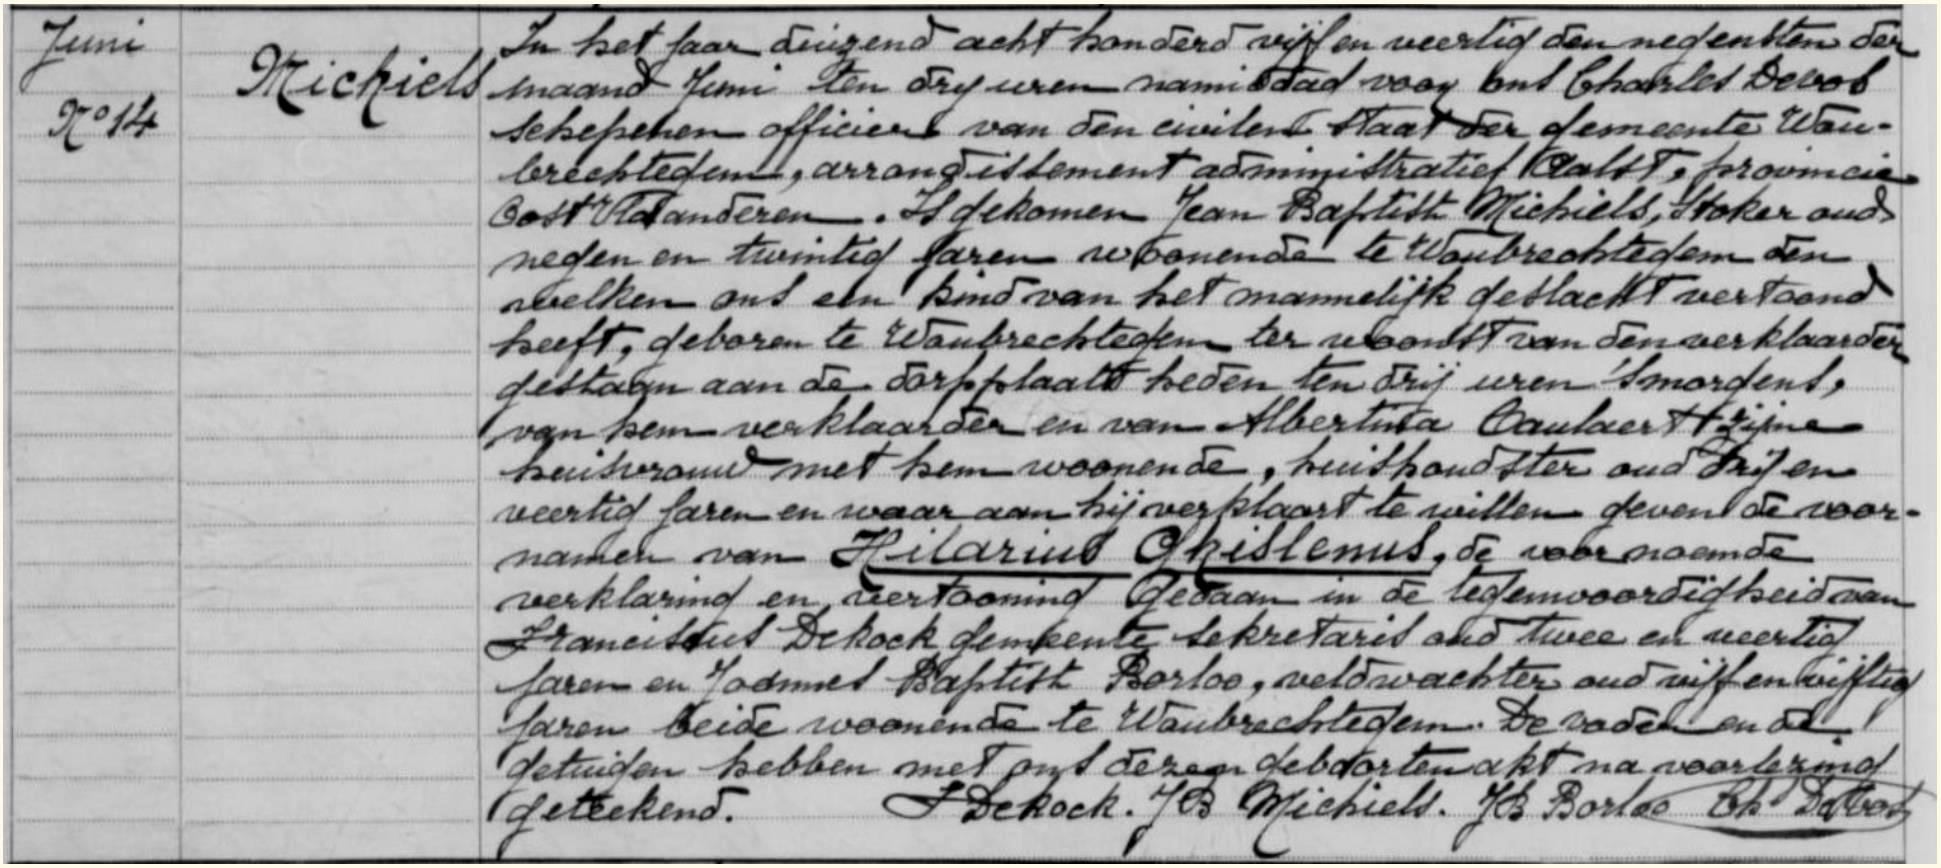 Juni
No 14
Michiels
In het jaar duizend acht honderd vijf en veertig den negensten der
maand Juni ten dry uren namiddag voor ons Charles Devos
schepenen officiers van den civilen staat der gemeente Wou-
brechtegem, arrondissement administratief Aalst, provincie
Oost Vlaanderen. Is gekomen Jean Baptist Michiels, Stoker oud
negen en twintig jaren woonende te Woubrechtegem den
welken ons een kind van het mannelijk geslacht vertoond
heeft, geboren te Woubrechtegem ter woonst van den verklaarder
gestaan aan de dorpplaats heden ten drij uren 'smorgens,
van hem verklaarder en van Albertina Caulaert zijne
huisvrouw met hem woonende, huishoudster oud drij en
veertig jaren en waar aan hij verklaart te willen geven de voor-
namen van Hilarius Ghislenus, de voornoemde
verklaring en vertooning gedaan in de tegenwoordigheid van
Franciscus Dekock gemeente sekretaris oud twee en veertig
jaren en Joannes Baptist Borloo, veldwachter oud vijf en vijftig
jaren beide woonende te Woubrechtegem. De vader en de
getuigen hebben met ons dezen geboorten akt na voorlezing
geteekend. F Dekock. JB Michiels. JB Borloo Ch Devos